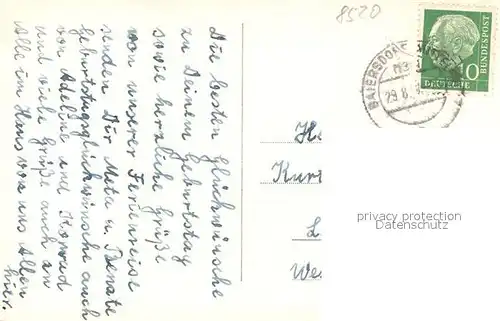 8520
Die besten Glückwünsche
zu Deinem Geburtstag
sowie herzliche Grüße
von unserer Ferienreise
senden Dir Meta u. Beate
Geburtstagsglückwünsche auch
von Adeline und Konrad
und viele Grüße auch an
Alle im Haus von uns Allen
hier.
BAIERSDORF
29.8.
10
DEUTSCHE
BUNDESPOST
He
Kur
We
privacy protection
Datenschutz